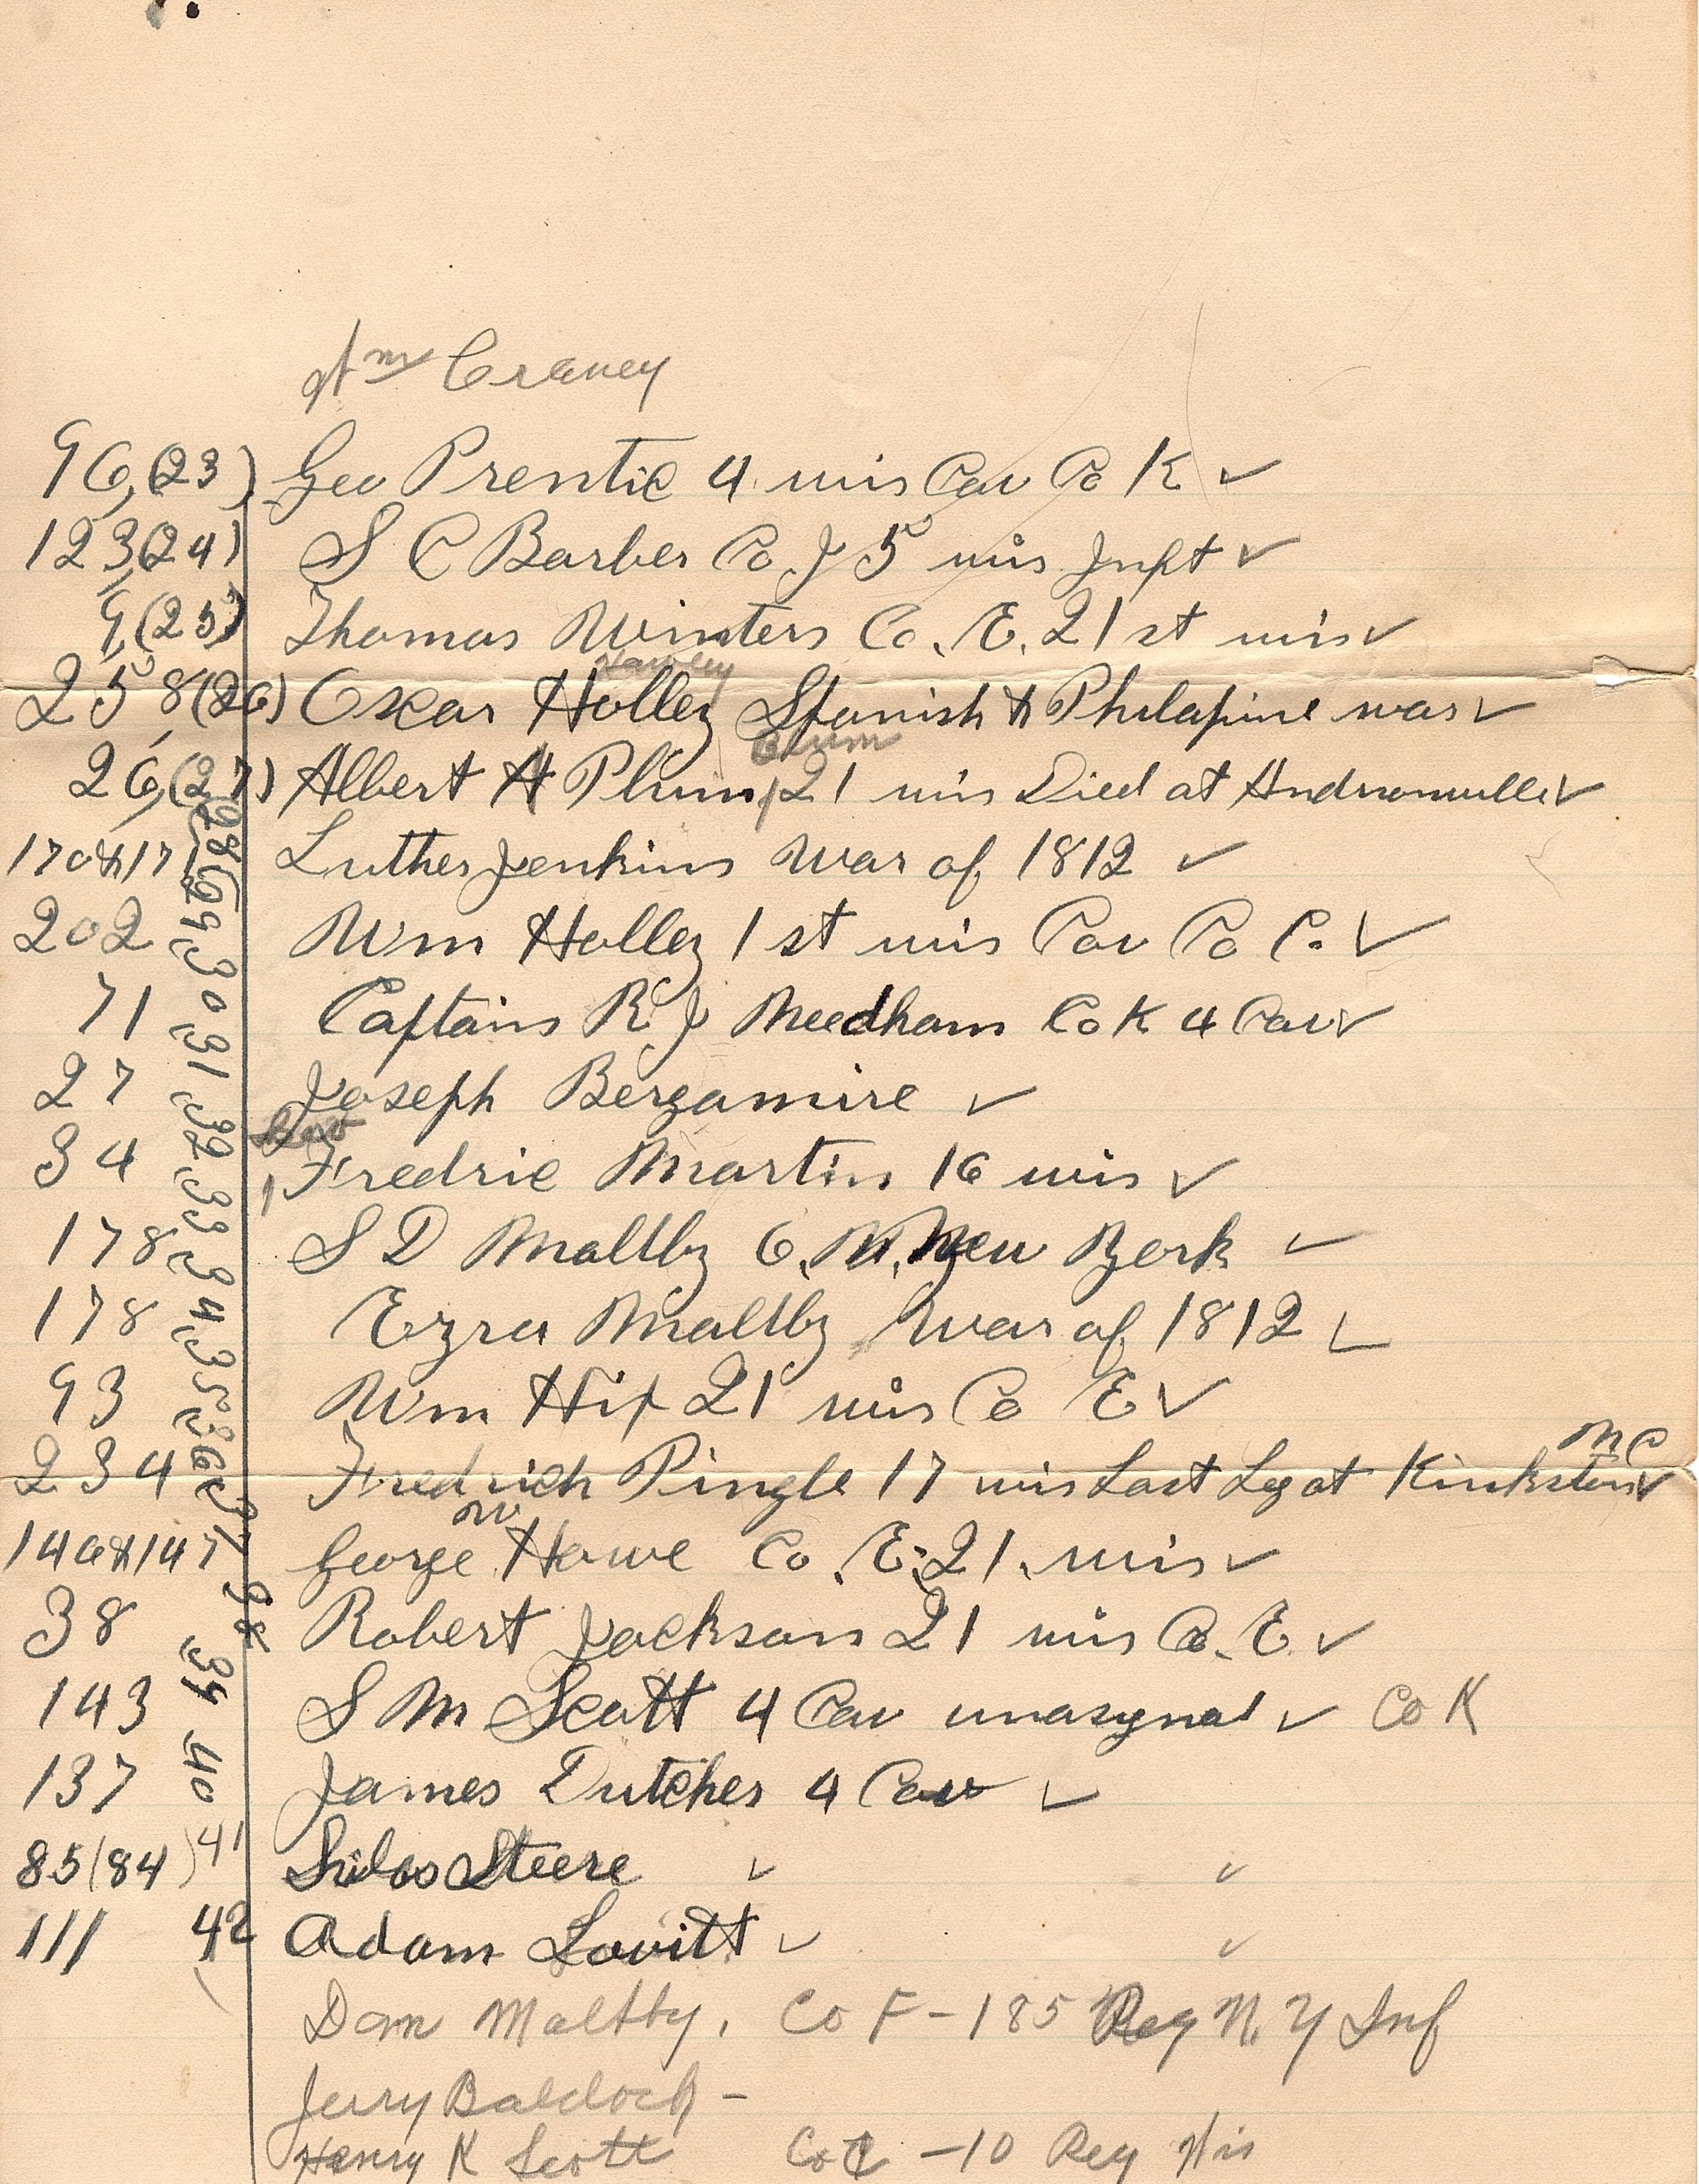 Wm Craney
96,(23) Geo Prentic 4 wis Cav Co K ✓
123,(24) S C Barber Co J 5 wis Inft ✓
9,(25) Thomas Winters Co. E. 21 st wis ✓
Hawley
258,(26) Oscar Holley Spanish & Philapine war ✓
Plum
26,(27) Albert A Plump 21 wis Died at Andersonville ✓
170&171 (28 Luther Jenkins War of 1812 ✓
202 (29 Wm Holley 1 st wis Cav Co C. ✓
71 (30 Captain R J Needham Co K 4 Cav ✓
27 (31 Joseph Bergamire ✓
34 (32 Fredric Martin 16 wis ✓
178 (33 S D Maltby 6. M. New York ✓
178 (34 Ezra Maltby War of 1812 ✓
93 (35 Wm Hip 21 wis Co E ✓
234 (36 Fredrich Pingle 17 wis Lost Leg at Kinkston NC ✓
W
146&147 (37 George Howe Co. E. 21. wis ✓
38 38 Robert Jackson 21 wis Co. E. ✓
143 (39 S M Scott 4 Cav unasynad ✓ Co K
137 40 James Dutcher 4 Cav ✓
85(84) 41 Silas Steere ✓ ✓
111 42 Adam Lovitt ✓ ✓
Dan Maltby, Co F - 185 Reg N. Y Inf
Jerry Baldock -
Henry K Scott Co C - 10 Reg Wis